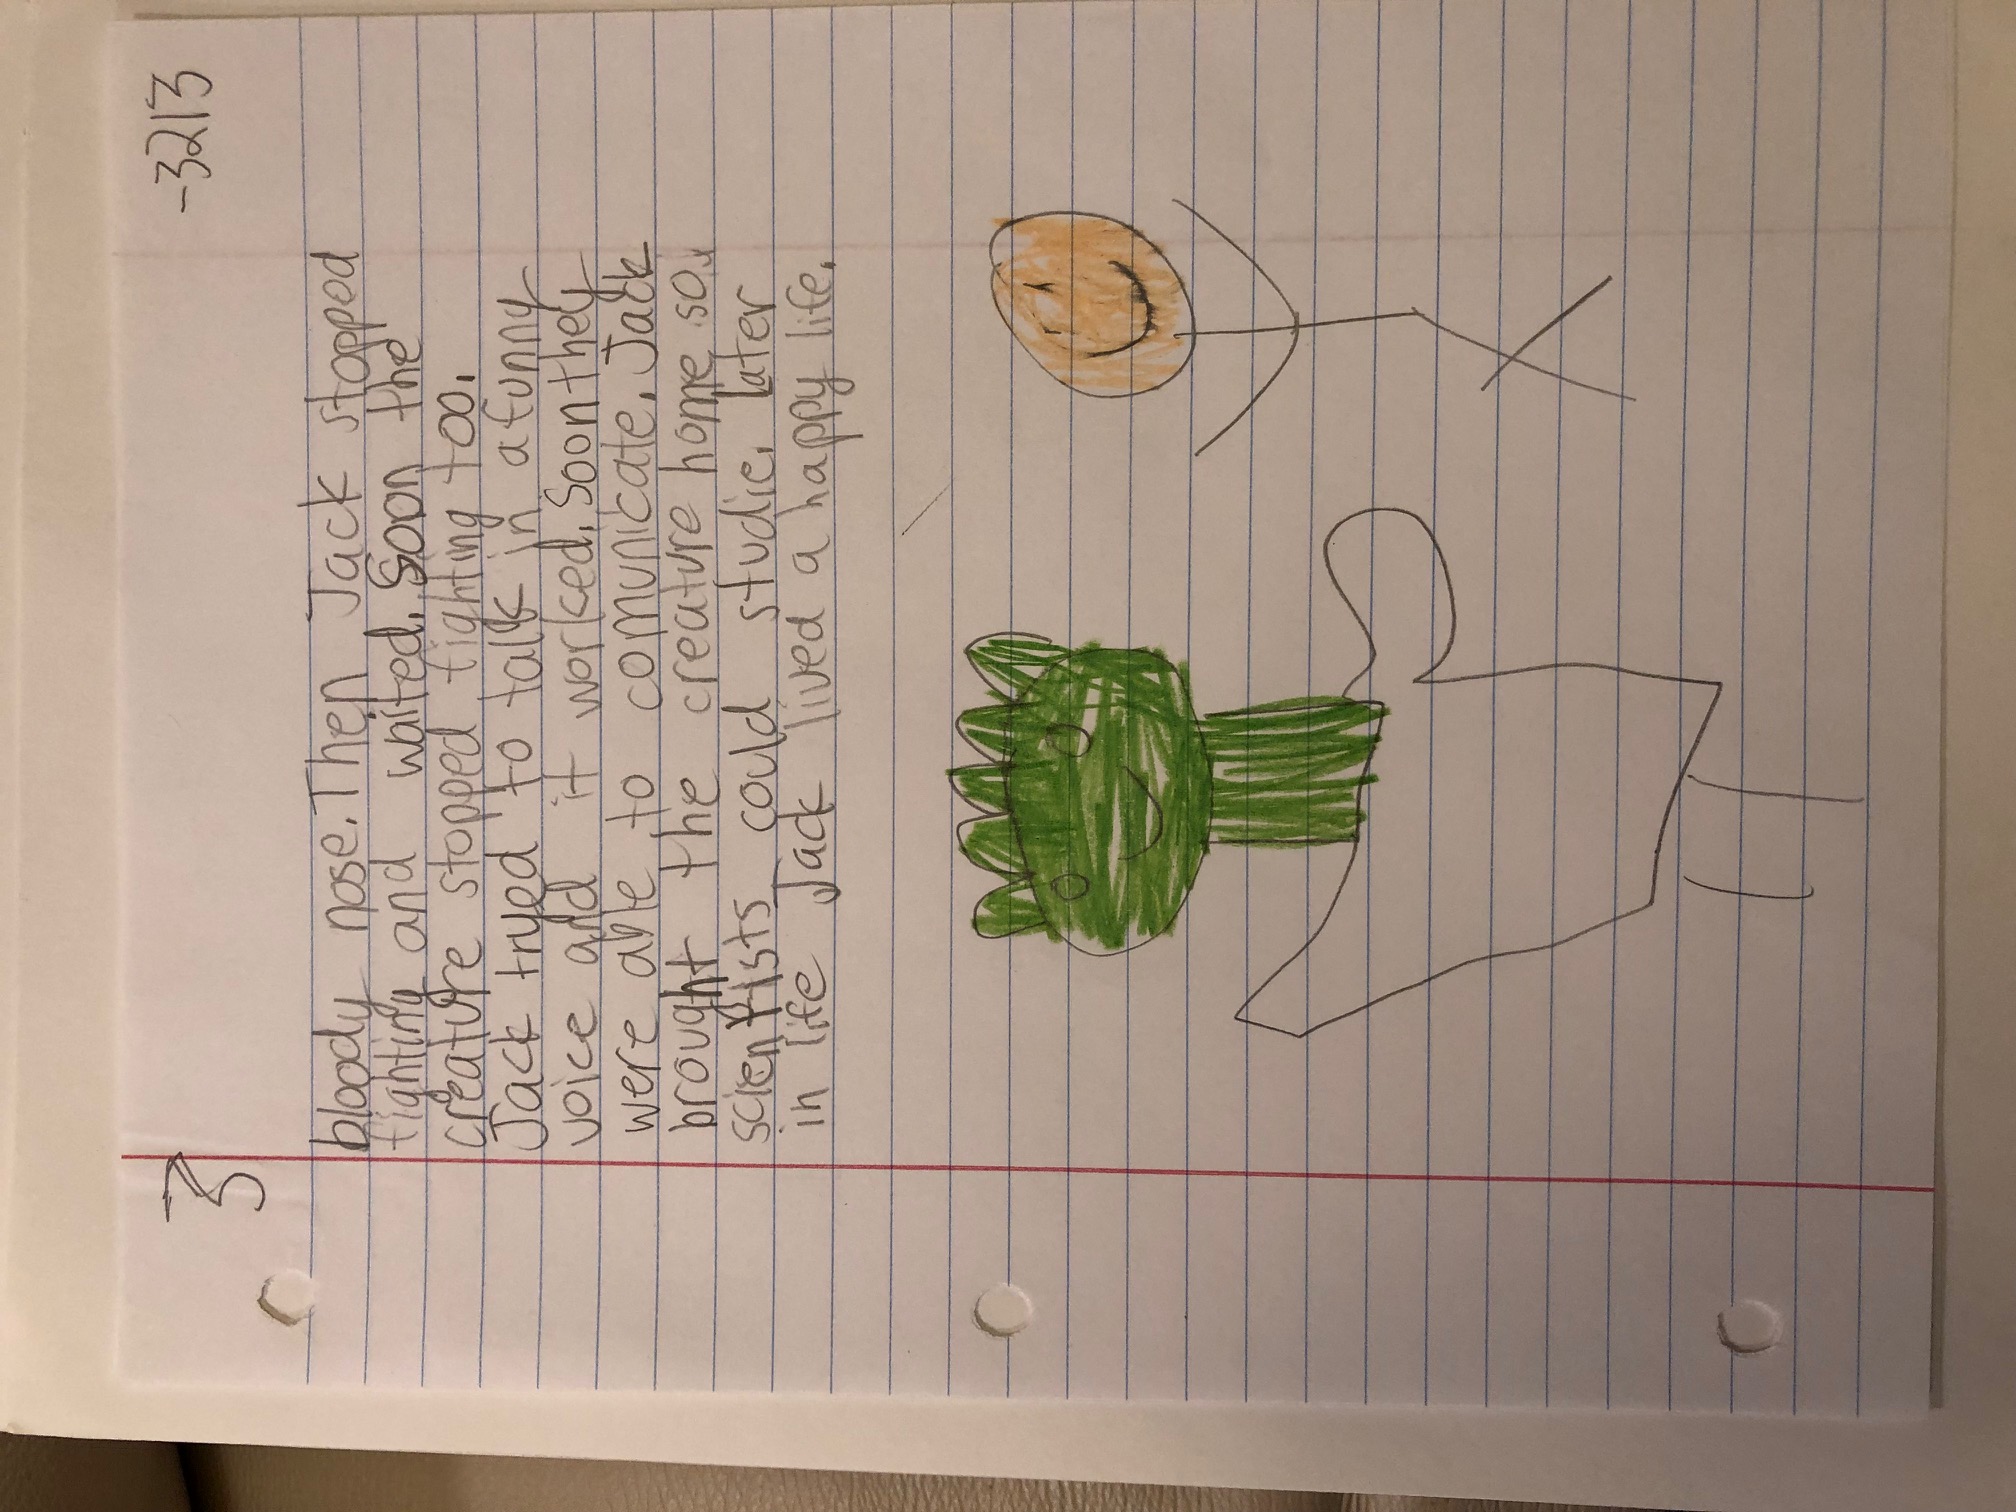 3
-3213
bloody nose. Then Jack stopped
fighting and waited. Soon the
creature stopped fighting too.
Jack tryed to talk in a funny
voice and it worked. Soon they
were able to comunicate. Jack
brought the creature home so
scientists could studie. Later
in life Jack lived a happy life.